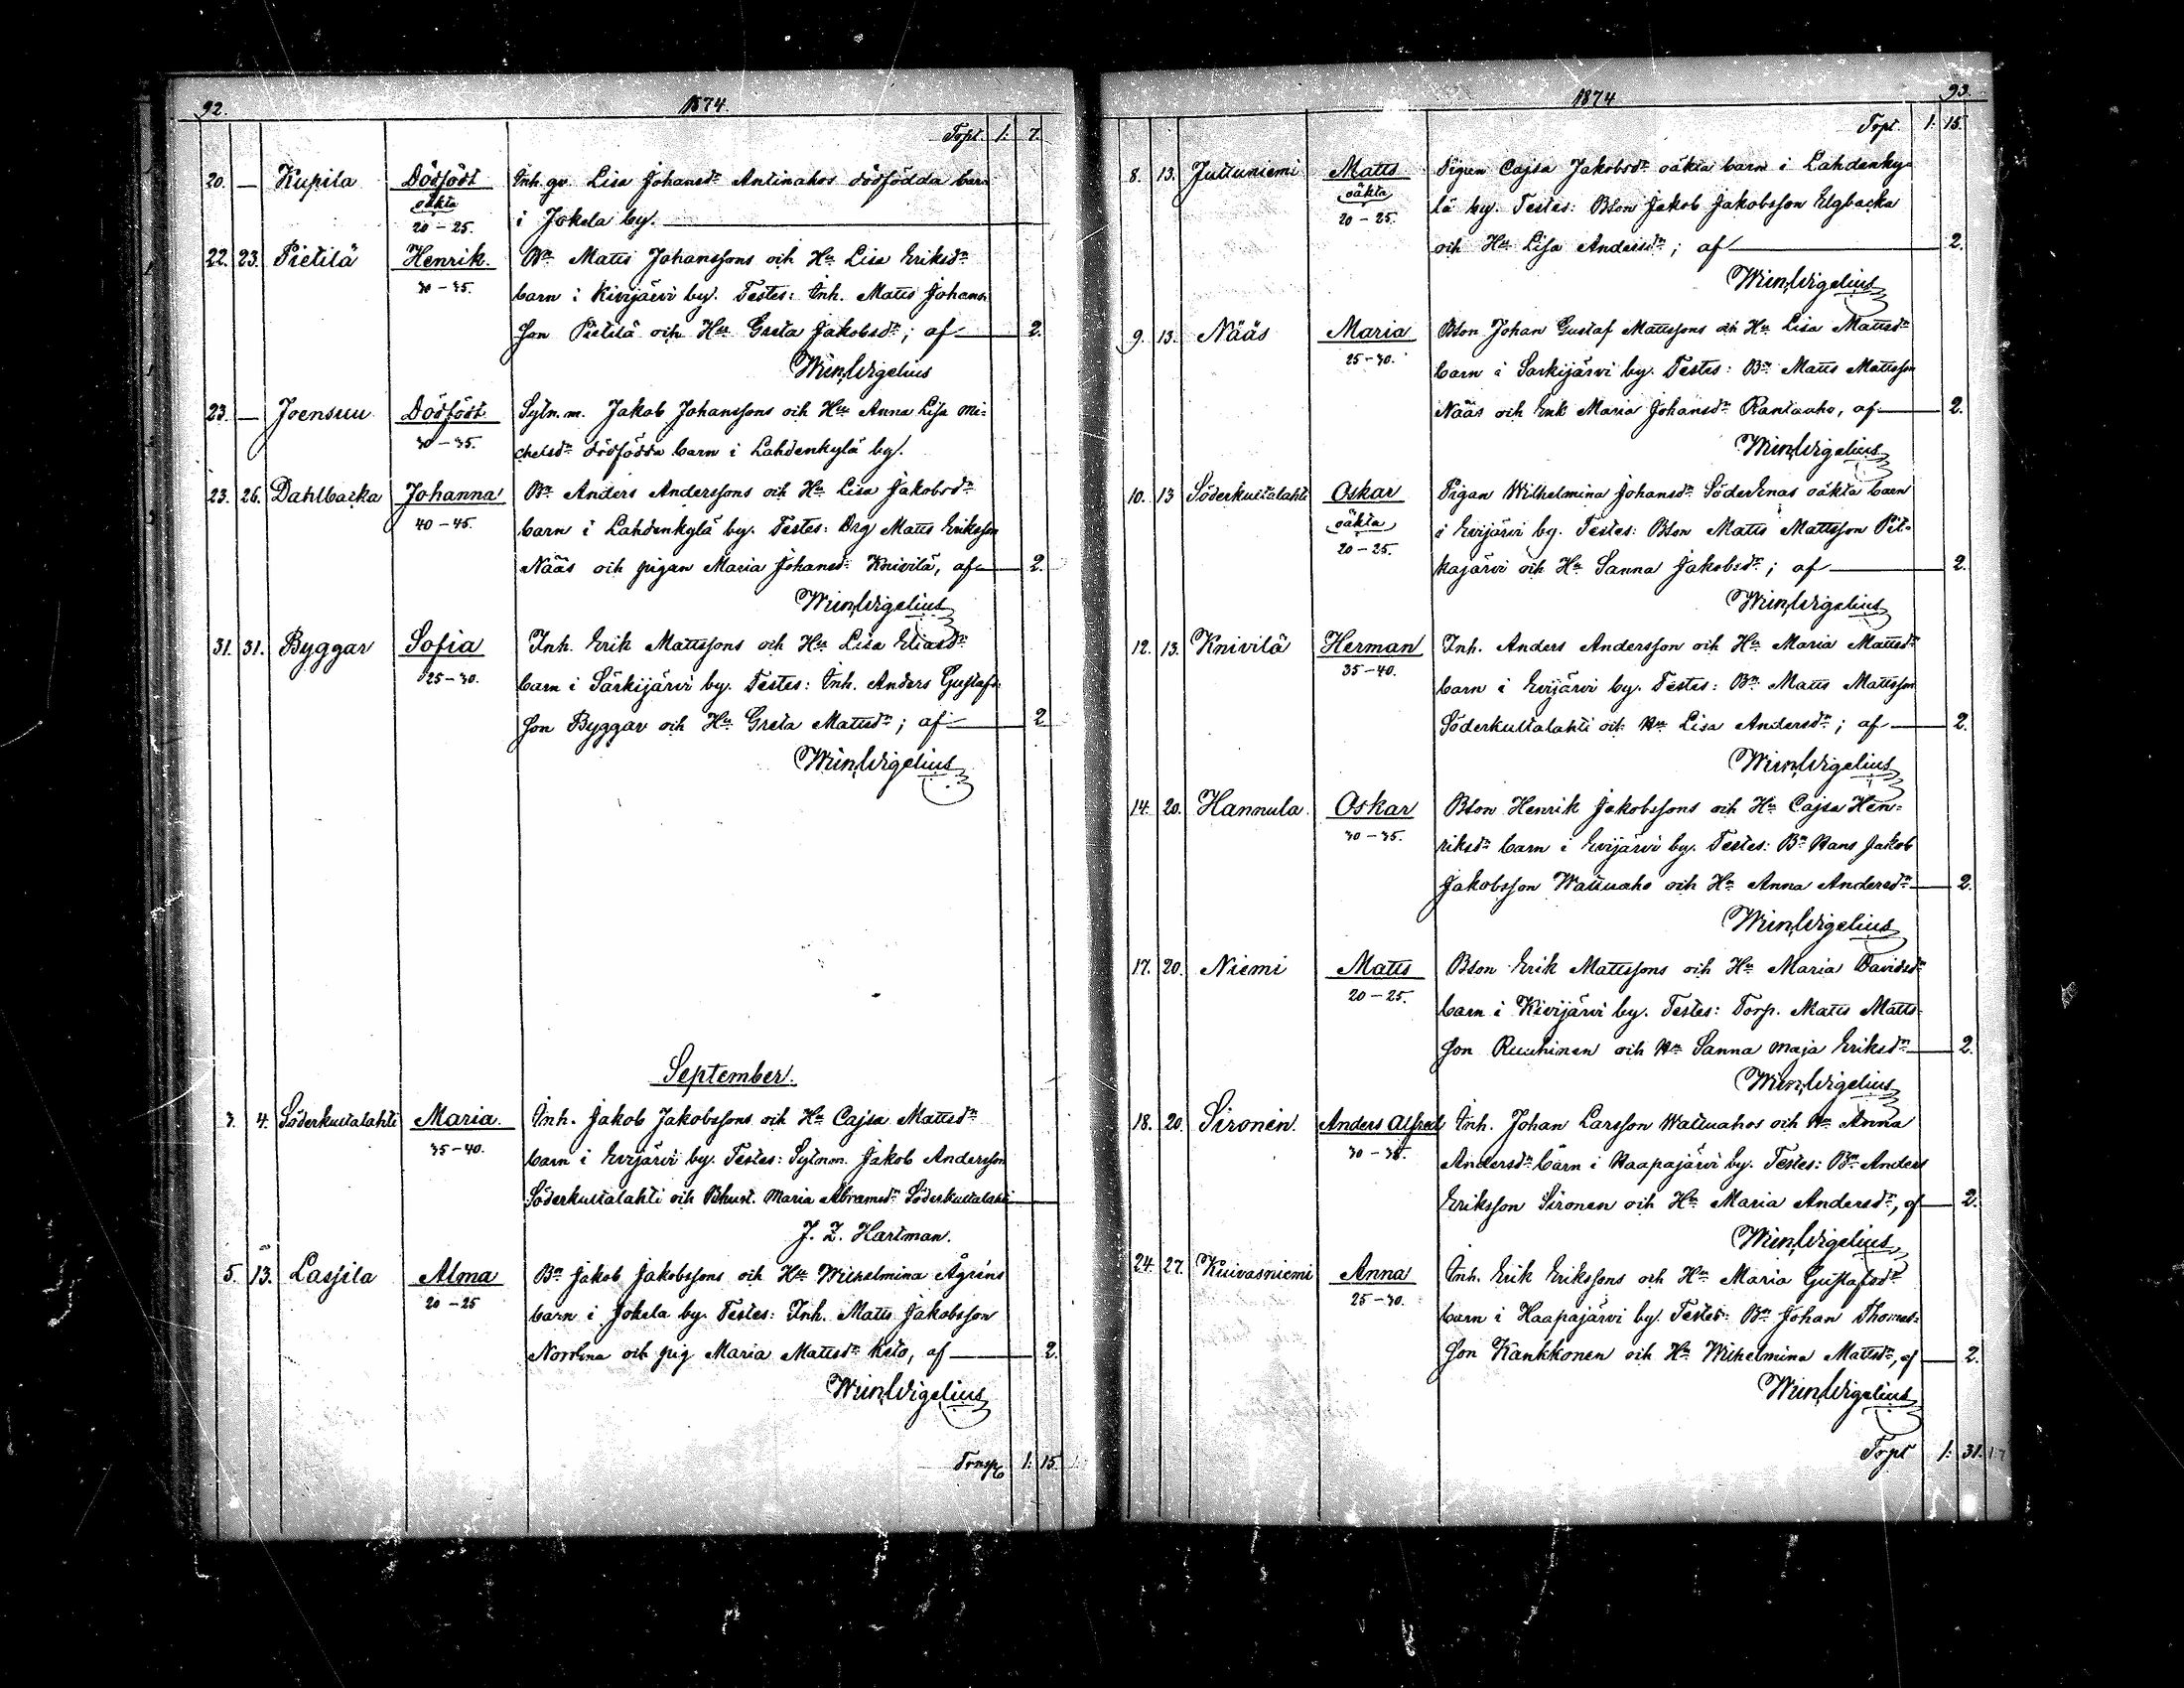 92.
1874.
Topt. 1. 7.
20. — Kupila Dödfödt Inh. gv. Lisa Johansdr Antinahos dödfödda barn
oäkta
20-25. i Jokela by.
22. 23. Pietilä Henrik. Bn Matts Johanssons och Hu Lisa Eriksdr
30-35. barn i Kivijärvi by. Testes: Inh. Matts Johans-
son Pietilä och Hu Greta Jakobsdr; af — 2.
Wm Wigelius
23. — Joensuu Dödfödt Sytn.m. Jakob Johanssons och Hu Anna Lisa Mi-
30-35. chelsdr dödfödda barn i Lahdenkylä by.
23. 26. Dahlbacka Johanna Bn Anders Anderssons och Hu Lisa Jakobsdr
40-45. barn i Lahdenkylä by. Testes: Drg Matts Eriksson
Nääs och pigan Maria Johansdr Knivilä, af — 2.
Wm Wigelius
31. 31. Byggar Sofia Inh. Erik Mattssons och Hu Lisa Eliasdr
25-30. barn i Särkijärvi by. Testes: Inh. Anders Gustafs-
son Byggar och Hu Greta Mattsdr; af — 2
Wm Wigelius
September.
3. 4. Söderkultalahti Maria. Inh. Jakob Jakobssons och Hu Cajsa Mattsdr
35-40. barn i Evijärvi by. Testes: Sytn.m. Jakob Andersson
Söderkultalahti och Bhust. Maria Abramsdr Söderkultalahti —
J. Z. Hartman.
5. 13. Lassila Alma Bn Jakob Jakobssons och Hu Wilhelmina Ågrens
20-25 barn i Jokela by. Testes: Inh. Matts Jakobsson
Norrena och pig Maria Mattsdr Keto, af — 2.
Wm Wigelius
Transp. 1. 15.
93.
1874
Topt. 1. 15.
8. 13. Juttuniemi Matts Pigan Cajsa Jakobsdr oäkta barn i Lahdenky-
oäkta
20-25. lä by. Testes: Bson Jakob Jakobsson Elgbacka
och Hu Lisa Andersdr; af — 2.
Wm Wigelius
9. 13. Nääs Maria Bson Johan Gustaf Mattssons och Hu Lisa Mattsdr
25-30. barn i Särkijärvi by. Testes: Bn Matts Mattsson
Nääs och Enk Maria Johansdr Rantaaho, af — 2.
Wm Wigelius
10. 13 Söderkultalahti Oskar Pigan Wilhelmina Johansdr Söderknas oäkta barn
oäkta
20-25. i Evijärvi by. Testes: Bson Matts Mattsson Pit-
kajärvi och Hu Sanna Jakobsdr; af — 2.
Wm Wigelius
12. 13. Knivilä Herman Inh. Anders Andersson och Hu Maria Mattsdr
35-40. barn i Evijärvi by. Testes: Bn Matts Mattsson
Söderkultalahti och Hu Lisa Andersdr; af — 2.
Wm Wigelius
14. 20. Hannula Oskar Bson Henrik Jakobssons och Hu Cajsa Hen-
30-35. riksdr barn i Evijärvi by. Testes: Bn Hans Jakob
Jakobsson Wattuaho och Hu Anna Andersdr — 2.
Wm Wigelius
17. 20. Niemi Matts Bson Erik Mattssons och Hu Maria Davidsdr
20-25. barn i Kivijärvi by. Testes: Torp. Matts Matts-
son Ruuhinen och Hu Sanna Maja Eriksdr — 2.
Wm Wigelius
18. 20. Sironen. Anders Alfred Inh. Johan Larsson Wattuahos och Hu Anna
30-35. Andersdr barn i Haapajärvi by. Testes: Bn Anders
Eriksson Sironen och Hu Maria Andersdr, af — 2.
Wm Wigelius
24. 27. Kuivasniemi Anna Inh. Erik Erikssons och Hu Maria Gustafsdr
25-30. barn i Haapajärvi by. Testes: Bn Johan Thomas-
son Kankkonen och Hu Wilhelmina Mattsdr, af — 2.
Wm Wigelius
Topt 1. 31.